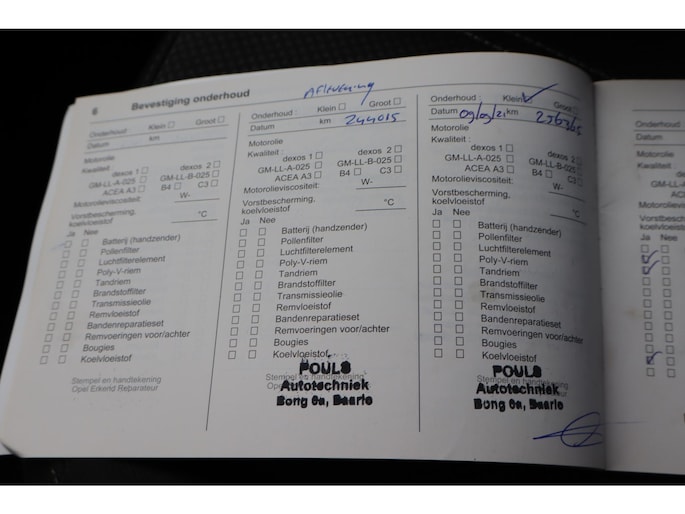 6 Bevestiging onderhoud
Onderhoud: Klein Groot
Datum km
Motorolie
Kwaliteit:
dexos 1 dexos 2
GM-LL-A-025 GM-LL-B-025
ACEA A3 B4 C3
Motorolieviscositeit: W-
Vorstbescherming, koelvloeistof °C
Ja Nee
Batterij (handzender)
Pollenfilter
Luchtfilterelement
Poly-V-riem
Tandriem
Brandstoffilter
Transmissieolie
Remvloeistof
Bandenreparatieset
Remvoeringen voor/achter
Bougies
Koelvloeistof
Stempel en handtekening
Opel Erkend Reparateur
Aflevering
Onderhoud: Klein Groot
Datum km 244015
Motorolie
Kwaliteit:
dexos 1 dexos 2
GM-LL-A-025 GM-LL-B-025
ACEA A3 B4 C3
Motorolieviscositeit: W-
Vorstbescherming, koelvloeistof °C
Ja Nee
Batterij (handzender)
Pollenfilter
Luchtfilterelement
Poly-V-riem
Tandriem
Brandstoffilter
Transmissieolie
Remvloeistof
Bandenreparatieset
Remvoeringen voor/achter
Bougies
Koelvloeistof
Stempel en handtekening
POULS
Autotechniek
Bong 6a, Baarlo
Onderhoud: Klein Groot
Datum 09/09/21 km
Motorolie
Kwaliteit:
dexos 1 dexos 2
GM-LL-A-025 GM-LL-B-025
ACEA A3 B4 C3
Motorolieviscositeit: W-
Vorstbescherming, koelvloeistof °C
Ja Nee
Batterij (handzender)
Pollenfilter
Luchtfilterelement
Poly-V-riem
Tandriem
Brandstoffilter
Transmissieolie
Remvloeistof
Bandenreparatieset
Remvoeringen voor/achter
Bougies
Koelvloeistof
Stempel en handtekening
POULS
Autotechniek
Bong 6a, Baarlo
Onderhoud
Datum
Motorolie
Kwaliteit:
GM-LL-A
ACEA
Motorolievis
Vorstbesche
koelvloeistof
Ja Nee